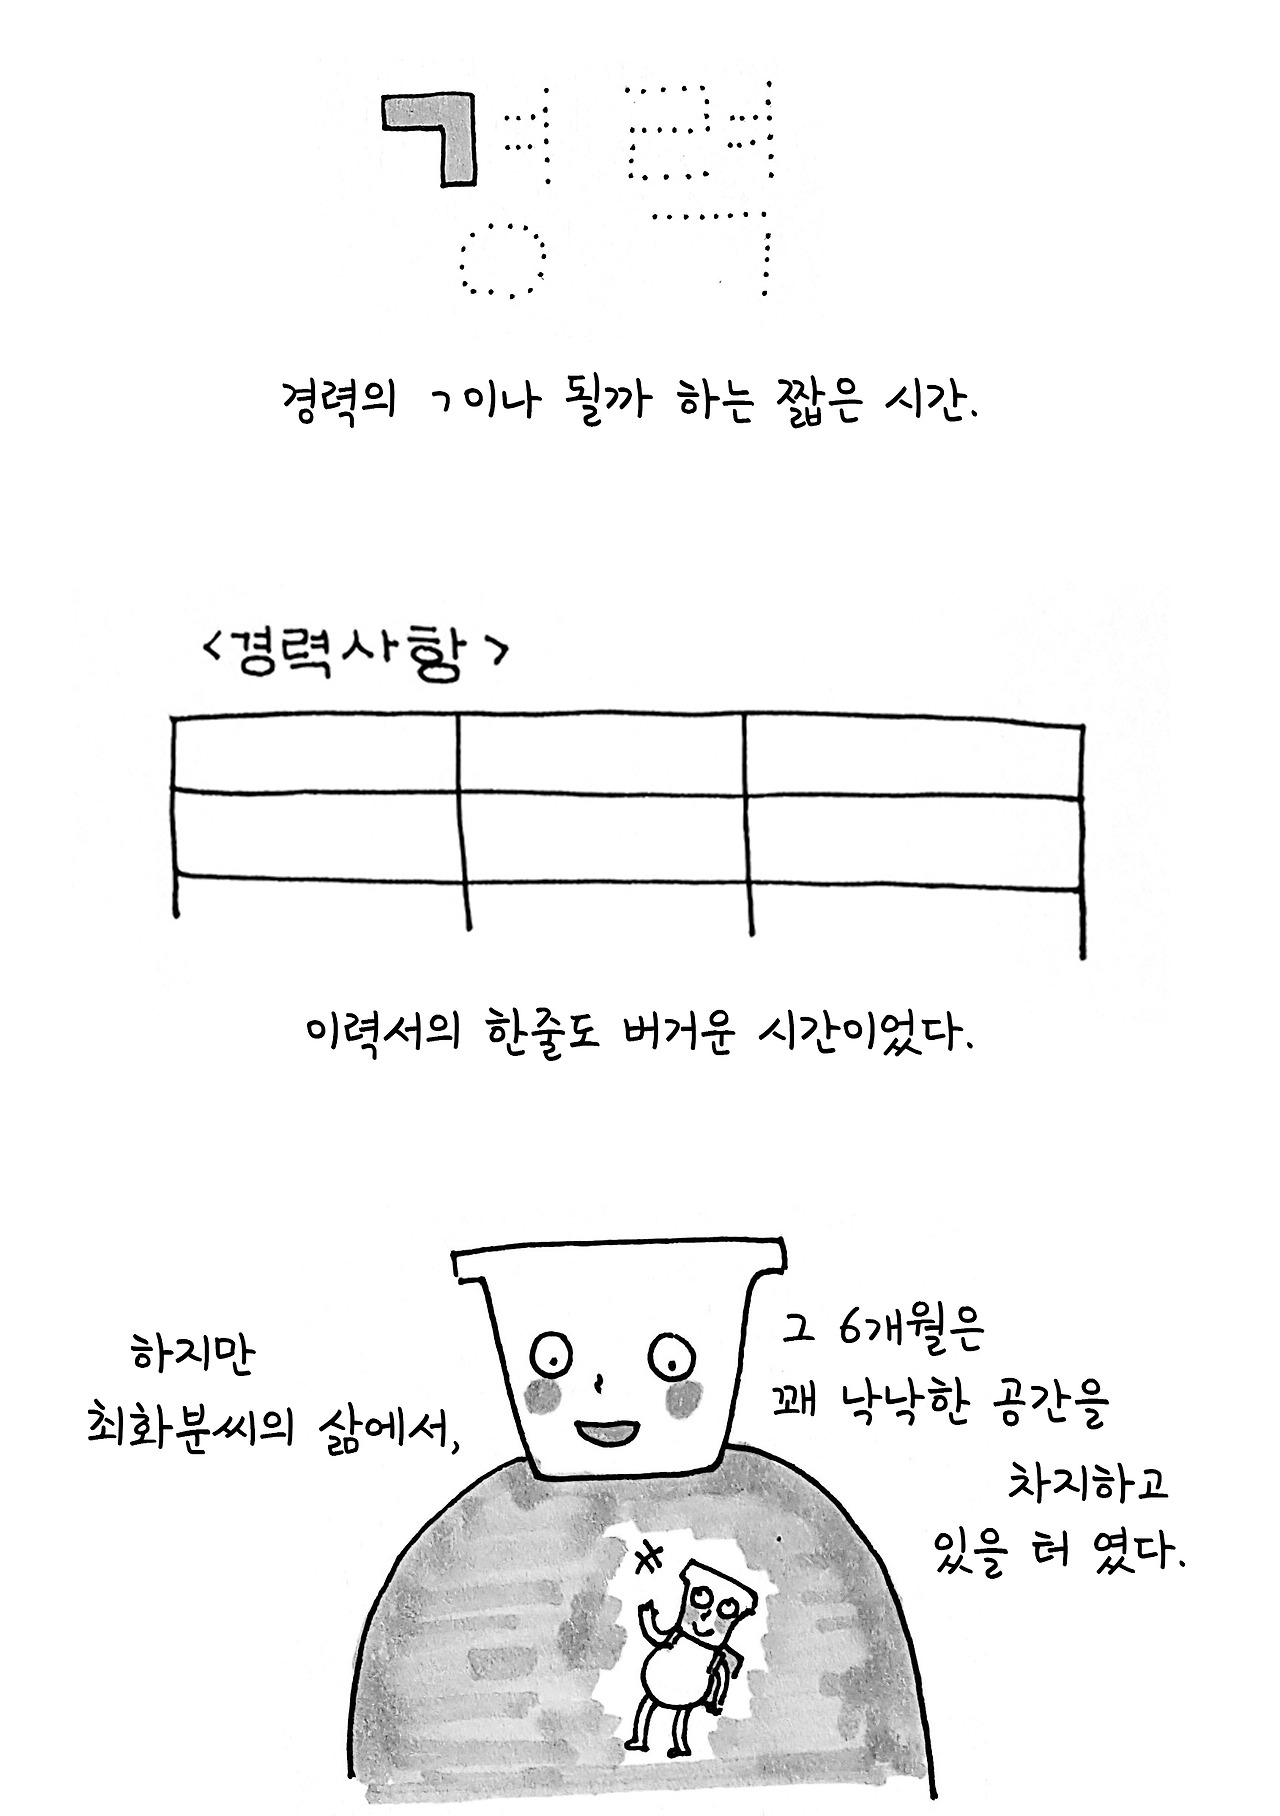 경력
경력의 ㄱ이나 될까 하는 짧은 시간.
<경력사항>
이력서의 한줄도 버거운 시간이었다.
하지만
최화분씨의 삶에서,
그 6개월은
꽤 낙낙한 공간을
차지하고
있을 터 였다.